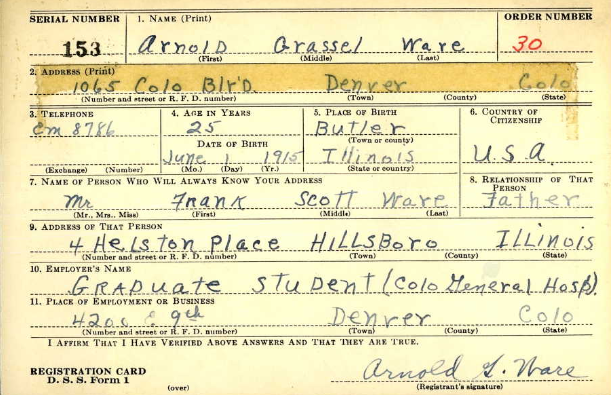 SERIAL NUMBER 1. NAME (Print) ORDER NUMBER
153 Arnold Grassel Ware 30
(First) (Middle) (Last)
2. ADDRESS (Print)
1065 Colo Blr'd. Denver Colo
(Number and street or R. F. D. number) (Town) (County) (State)
3. TELEPHONE 4. AGE IN YEARS 5. PLACE OF BIRTH 6. COUNTRY OF CITIZENSHIP
Em 8786 25 Butler
DATE OF BIRTH (Town or county)
June 1 1915 Illinois U.S.A.
(Exchange) (Number) (Mo.) (Day) (Yr.) (State or country)
7. NAME OF PERSON WHO WILL ALWAYS KNOW YOUR ADDRESS 8. RELATIONSHIP OF THAT PERSON
Mr Frank Scott Ware Father
(Mr., Mrs., Miss) (First) (Middle) (Last)
9. ADDRESS OF THAT PERSON
4 Helston Place Hillsboro Illinois
(Number and street or R. F. D. number) (Town) (County) (State)
10. EMPLOYER'S NAME
Graduate Student (Colo General Hosp).
11. PLACE OF EMPLOYMENT OR BUSINESS
4200 E 9th Denver Colo
(Number and street or R. F. D. number) (Town) (County) (State)
I AFFIRM THAT I HAVE VERIFIED ABOVE ANSWERS AND THAT THEY ARE TRUE.
REGISTRATION CARD Arnold G. Ware
D. S. S. Form 1 (over) (Registrant's signature)